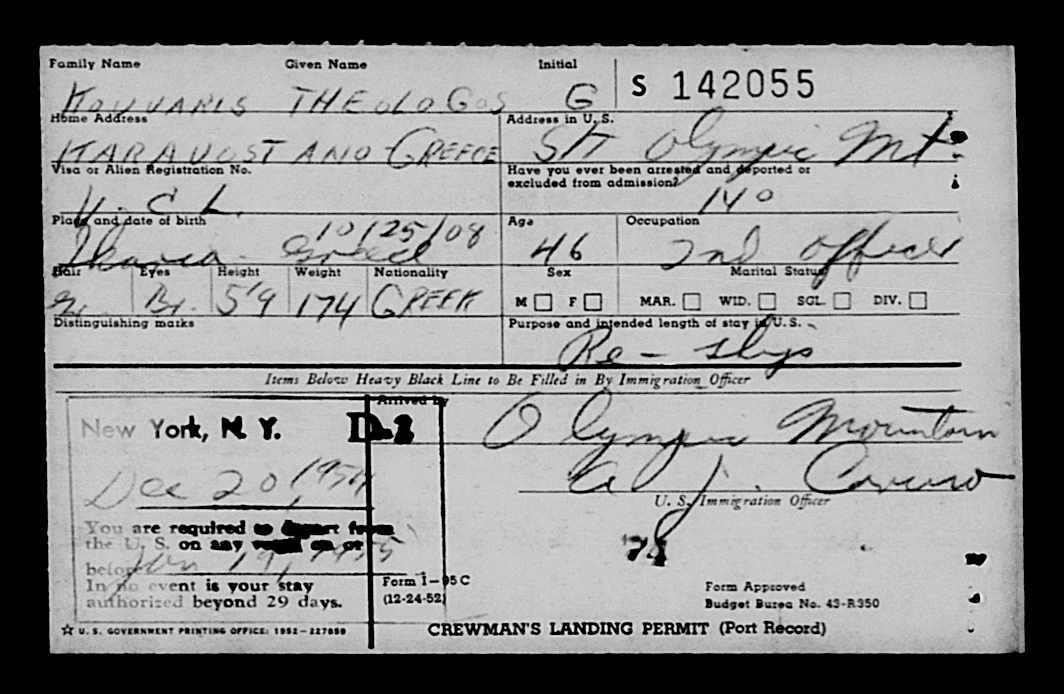 Family Name Given Name Initial
KOUVARIS THEOLOGOS G S 142055
Home Address Address in U. S.
KARAVOSTAMO GREECE SH Olympic Mt.
Visa or Alien Registration No. Have you ever been arrested and deported or
excluded from admission?
V. C L. NO
Place and date of birth Age Occupation
10/25/08
Ikaria - Greece 46 2nd Officer
Hair Eyes Height Weight Nationality Sex Marital Status
Gr. Br. 5'9 174 GREEK M F MAR. WID. SGL. DIV.
Distinguishing marks Purpose and intended length of stay in U. S.
Re - ship
Items Below Heavy Black Line to Be Filled in By Immigration Officer
Arrived by
New York, N. Y. D-1 Olympic Mountain
Dec 20, 1954 A J. Caruso
U. S. Immigration Officer
You are required to depart from
the U. S. on any vessel on or
before Jan 19, 1955
In no event is your stay
authorized beyond 29 days.
Form I-95 C
(12-24-52)
Form Approved
Budget Bureau No. 43-R350
U. S. GOVERNMENT PRINTING OFFICE: 1952-227850
CREWMAN'S LANDING PERMIT (Port Record)